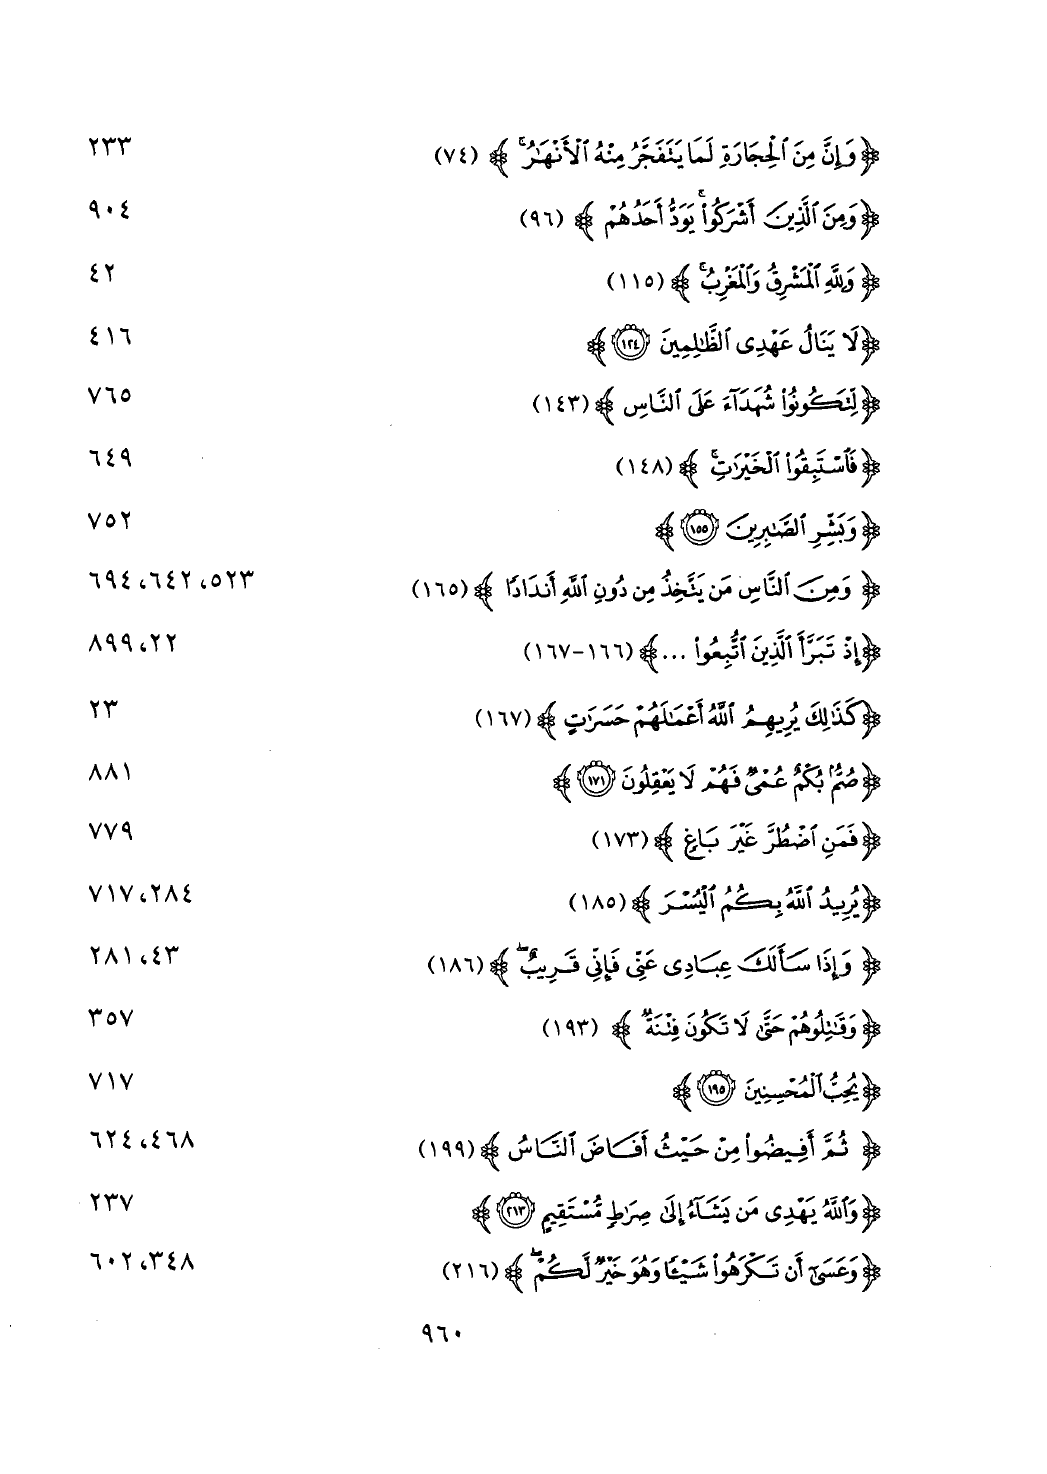 ﴿وَإِنَّ مِنَ ٱلْحِجَارَةِ لَمَا يَتَفَجَّرُ مِنْهُ ٱلْأَنْهَٰرُ ۚ﴾ (٧٤) ٢٣٣
﴿وَمِنَ ٱلَّذِينَ أَشْرَكُوا۟ ۚ يَوَدُّ أَحَدُهُمْ﴾ (٩٦) ٩٠٤
﴿وَلِلَّهِ ٱلْمَشْرِقُ وَٱلْمَغْرِبُ ۚ﴾ (١١٥) ٤٢
﴿لَا يَنَالُ عَهْدِى ٱلظَّٰلِمِينَ ١٢٤﴾ ٤١٦
﴿لِّتَكُونُوا۟ شُهَدَآءَ عَلَى ٱلنَّاسِ﴾ (١٤٣) ٧٦٥
﴿فَٱسْتَبِقُوا۟ ٱلْخَيْرَٰتِ ۚ﴾ (١٤٨) ٦٤٩
﴿وَبَشِّرِ ٱلصَّٰبِرِينَ ١٥٥﴾ ٧٥٢
﴿وَمِنَ ٱلنَّاسِ مَن يَتَّخِذُ مِن دُونِ ٱللَّهِ أَندَادًا﴾ (١٦٥) ٥٢٣، ٦٤٢، ٦٩٤
﴿إِذْ تَبَرَّأَ ٱلَّذِينَ ٱتُّبِعُوا۟ ...﴾ (١٦٦-١٦٧) ٢٢، ٨٩٩
﴿كَذَٰلِكَ يُرِيهِمُ ٱللَّهُ أَعْمَٰلَهُمْ حَسَرَٰتٍ﴾ (١٦٧) ٢٣
﴿صُمٌّۢ بُكْمٌ عُمْىٌ فَهُمْ لَا يَعْقِلُونَ ١٧١﴾ ٨٨١
﴿فَمَنِ ٱضْطُرَّ غَيْرَ بَاغٍ﴾ (١٧٣) ٧٧٩
﴿يُرِيدُ ٱللَّهُ بِكُمُ ٱلْيُسْرَ﴾ (١٨٥) ٢٨٤، ٧١٧
﴿وَإِذَا سَأَلَكَ عِبَادِى عَنِّى فَإِنِّى قَرِيبٌ ۖ﴾ (١٨٦) ٤٣، ٢٨١
﴿وَقَٰتِلُوهُمْ حَتَّىٰ لَا تَكُونَ فِتْنَةٌ﴾ (١٩٣) ٣٥٧
﴿يُحِبُّ ٱلْمُحْسِنِينَ ١٩٥﴾ ٧١٧
﴿ثُمَّ أَفِيضُوا۟ مِنْ حَيْثُ أَفَاضَ ٱلنَّاسُ﴾ (١٩٩) ٤٦٨، ٦٢٤
﴿وَٱللَّهُ يَهْدِى مَن يَشَآءُ إِلَىٰ صِرَٰطٍ مُّسْتَقِيمٍ ٢١٣﴾ ٢٣٧
﴿وَعَسَىٰٓ أَن تَكْرَهُوا۟ شَيْـًٔا وَهُوَ خَيْرٌ لَّكُمْ ۖ﴾ (٢١٦) ٣٤٨، ٦٠٢
٩٦٠